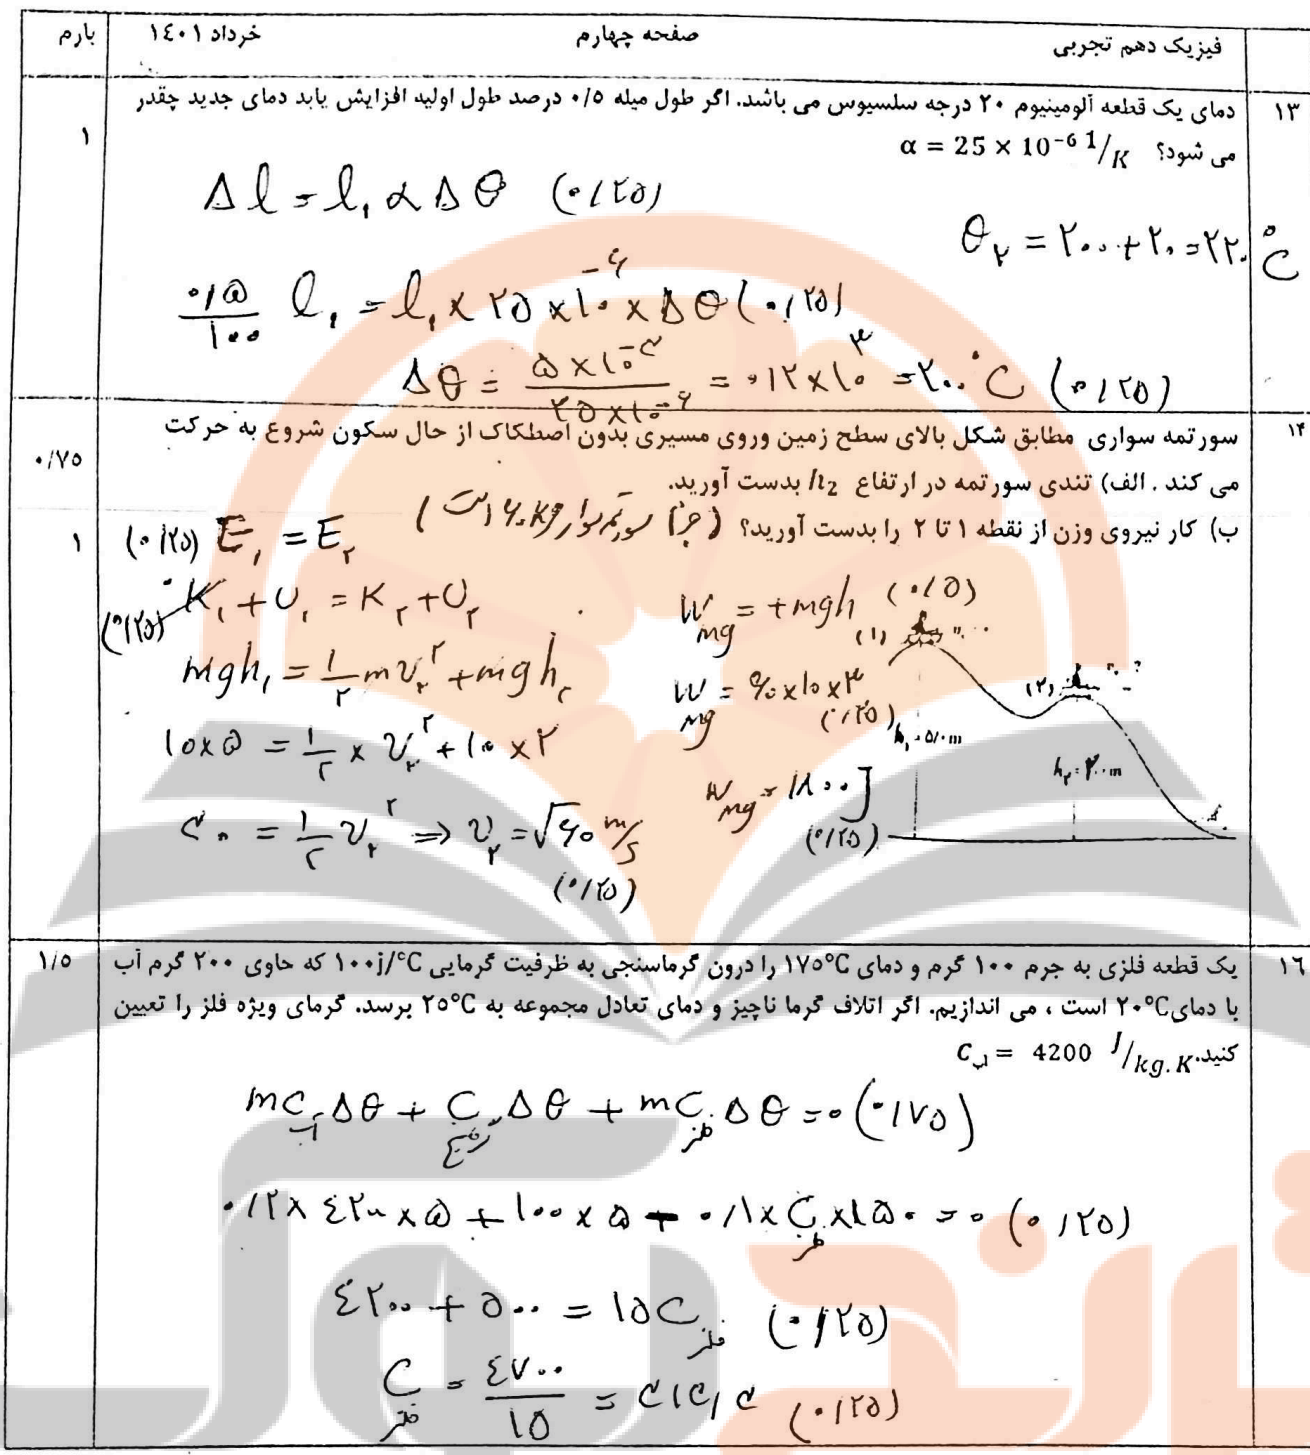 فیزیک دهم تجربی صفحه چهارم خرداد ۱٤۰۱ بارم
۱۳ دمای یک قطعه آلومینیوم ۲۰ درجه سلسیوس می باشد. اگر طول میله ۰/۵ درصد طول اولیه افزایش یابد دمای جدید چقدر ۱
می شود؟ α = 25 × 10⁻⁶ 1/K
Δl = l₁ α Δθ (۰/۲۵)
θ₂ = ۲۰۰ + ۲۰ = ۲۲۰ °C
۰/۵/۱۰۰ l₁ = l₁ × ۲۵ × ۱۰⁻⁶ × Δθ (۰/۲۵)
Δθ = ۵ × ۱۰⁻³ / ۲۵ × ۱۰⁻⁶ = ۰/۲ × ۱۰³ = ۲۰۰ °C (۰/۲۵)
۱۴ سورتمه سواری مطابق شکل بالای سطح زمین وروی مسیری بدون اصطکاک از حال سکون شروع به حرکت ۰/۷۵
می کند . الف) تندی سورتمه در ارتفاع h₂ بدست آورید.
ب) کار نیروی وزن از نقطه ۱ تا ۲ را بدست آورید؟ (جرم سورتمه سوار ۶۰ kg است) ۱
(۰/۲۵) E₁ = E₂
(۰/۲۵) K₁ + U₁ = K₂ + U₂
mgh₁ = ۱/۲ mv₂² + mgh₂
۱۰ × ۵ = ۱/۲ × v₂² + ۱۰ × ۲
۳۰ = ۱/۲ v₂² ⇒ v₂ = √۶۰ m/s
(۰/۲۵)
W mg = +mgh (۰/۵)
W mg = ۶۰ × ۱۰ × ۳
(۰/۲۵)
W mg = ۱۸۰۰ J
(۰/۲۵)
(۱)
(۲)
h₁ = ۵/۰ m
h₂ = ۲/۰ m
۱٦ یک قطعه فلزی به جرم ۱۰۰ گرم و دمای ۱۷۵°C را درون گرماسنجی به ظرفیت گرمایی ۱۰۰j/°C که حاوی ۲۰۰ گرم آب ۱/۵
با دمای ۲۰°C است ، می اندازیم. اگر اتلاف گرما ناچیز و دمای تعادل مجموعه به ۲۵°C برسد. گرمای ویژه فلز را تعیین
کنید. Cآب = 4200 J/kg.K
mCآب Δθ + C Δθ + mCفلز Δθ = ۰ (۰/۷۵)
۰/۲ × ٤۲۰۰ × ۵ + ۱۰۰ × ۵ - ۰/۱ × Cفلز × ۱۵۰ = ۰ (۰/۲۵)
٤۲۰۰ + ۵۰۰ = ۱۵Cفلز (۰/۲۵)
Cفلز = ٤۷۰۰/۱۵ = ۳۱۳/۳ (۰/۲۵)